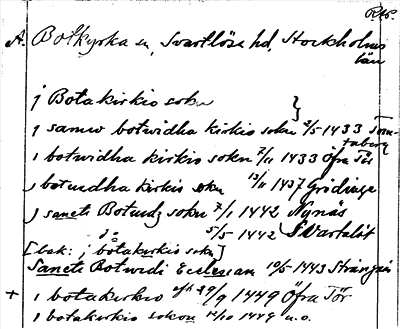 RAp.
A. Botkyrka sn, Svartlösa hd, Stockholms län
j Botakirkio sokn
j samw botwidha kirkis sokn 2/5 1433 Tom-taberg
i botwidha kirkis sokn 7/11 1433 Öfra Tör
j botuidha kirkis sokn 13/11 1437 Grödinge
j sancte Botundz sokn 7/1 1442 Nynäs
do 5/5 1442 Svartalöt
[bak: j botakirkis sokn]
Sancti Botwidi Ecclesiam 10/5 1443 Strängnäs
+ i botakirkio afsk 29/9 1449 Öfra Tör
i botakirkio sokn 1449 u.o.